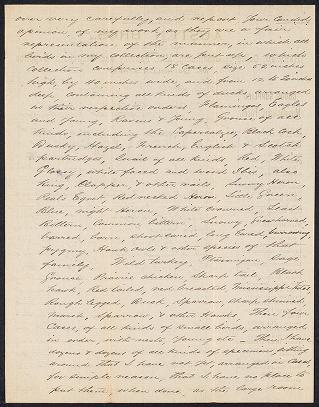 over very carefully, and report your candid
opinion of my work, as they are a fair
representation of the manner, in which all
birds in my collection are put up, which
collection comprises 18 Cases size 50 inches
high, by 40 inches wide, and from 12 to 20 inches
deep containing all kinds of ducks, arranged
in their respective orders. Flamingos, Eagles
and young, Ravens & young, Grouse of all
kinds, including the Capercalzie, Black Cock,
Dusky, Hazel, French, English & Scotch
partridges, Quail of all kinds, Red, White,
Glossy, white faced and wood Ibis, also
King, Clapper & other rails, Snowy Heron,
Peals Egret, Red necked Heron, Little Green,
Blue, night Heron, White Crowned, Least
Bittern, Common bittern, Snowy,
barred, barn, short eared, long eared, burrowing
pygmy, Hawk owls & other species of that
family, Wild turkey, Ptarmigan, Sage
Grouse Prairie chicken Sharp tail, Black
hawk, Red tailed, red breasted, Mississippi Kite
Rough legged, Buck, Sparrow, sharp shinned,
marsh, Sparrow, & other Hawks, Then four
Cases, of all kinds of small birds, arranged
in order, with nests, young etc - Then I have
dozens & dozens of all kinds of specimens, sitting
around that I have not yet arranged in cases,
for simple reason, that I have no place to
put them, when done, as the large room